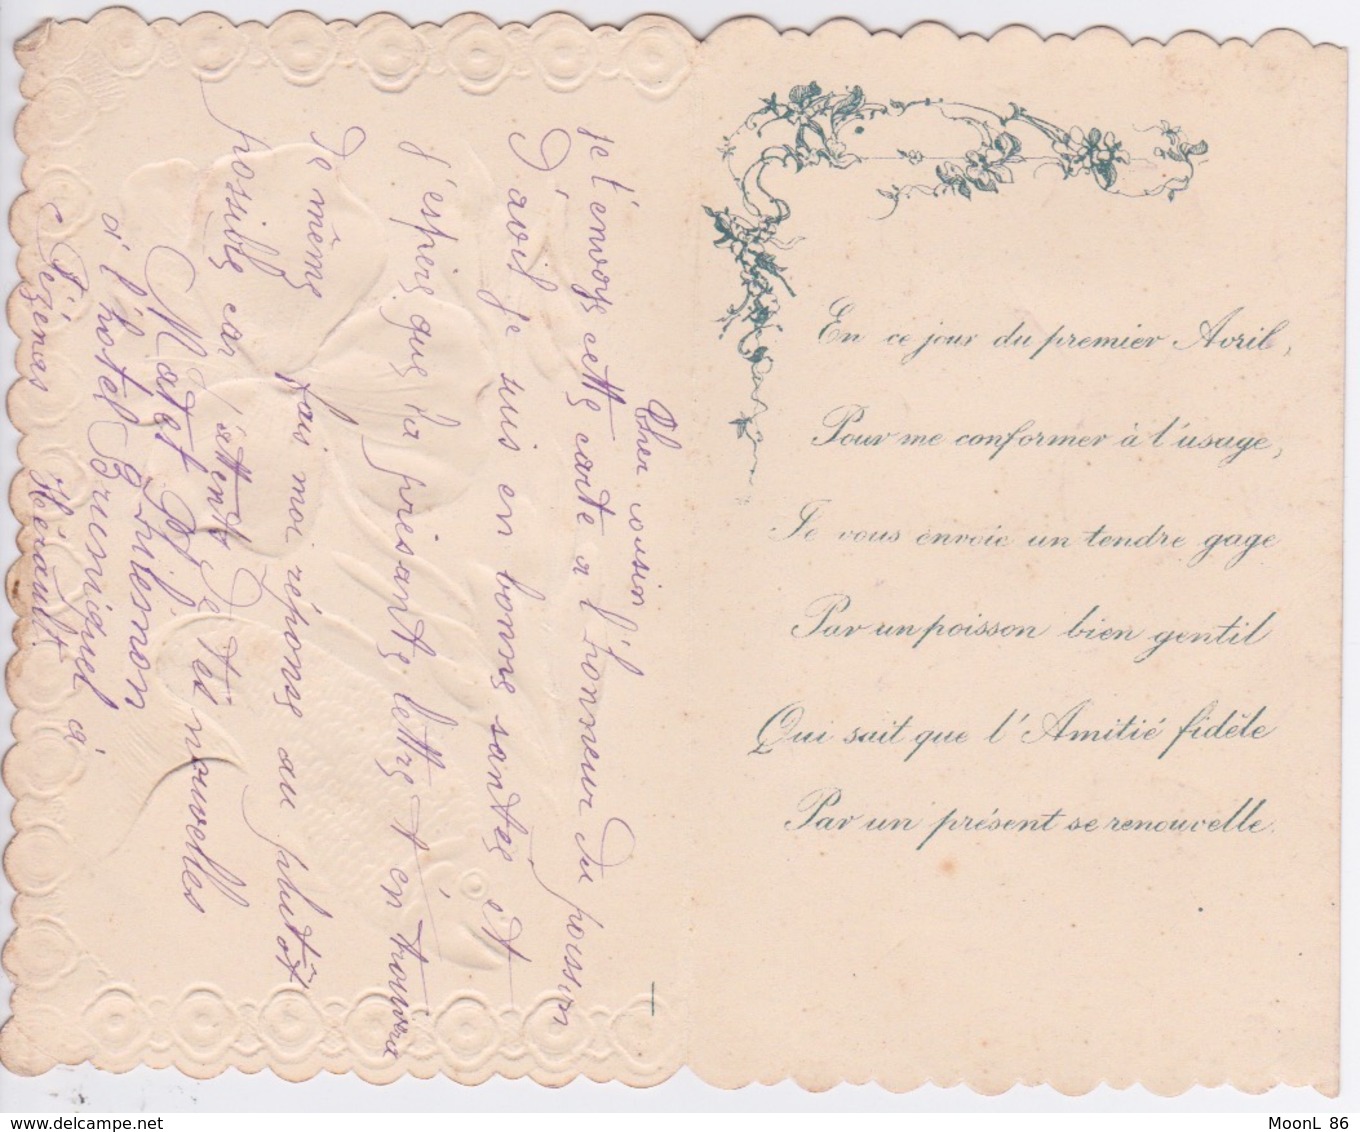 Cher cousion
je t'envoye cette carte a l'honneur du poission
D'avil je suis en bonne santée et
j'espere que la présante lettre t'en trouvera
de même fais moi réponse au plutôt
possible car j'attent de tes nouvelles
Matet
d'hotel Brusiquel à
Pézenas Hérault
En ce jour du premier Avril,
Pour me conformer à l'usage,
Je vous envoie un tendre gage
Par un poisson bien gentil
Qui sait que l'Amitié fidèle
Par un présent se renouvelle.
www.delcampe.net
MoonL 86